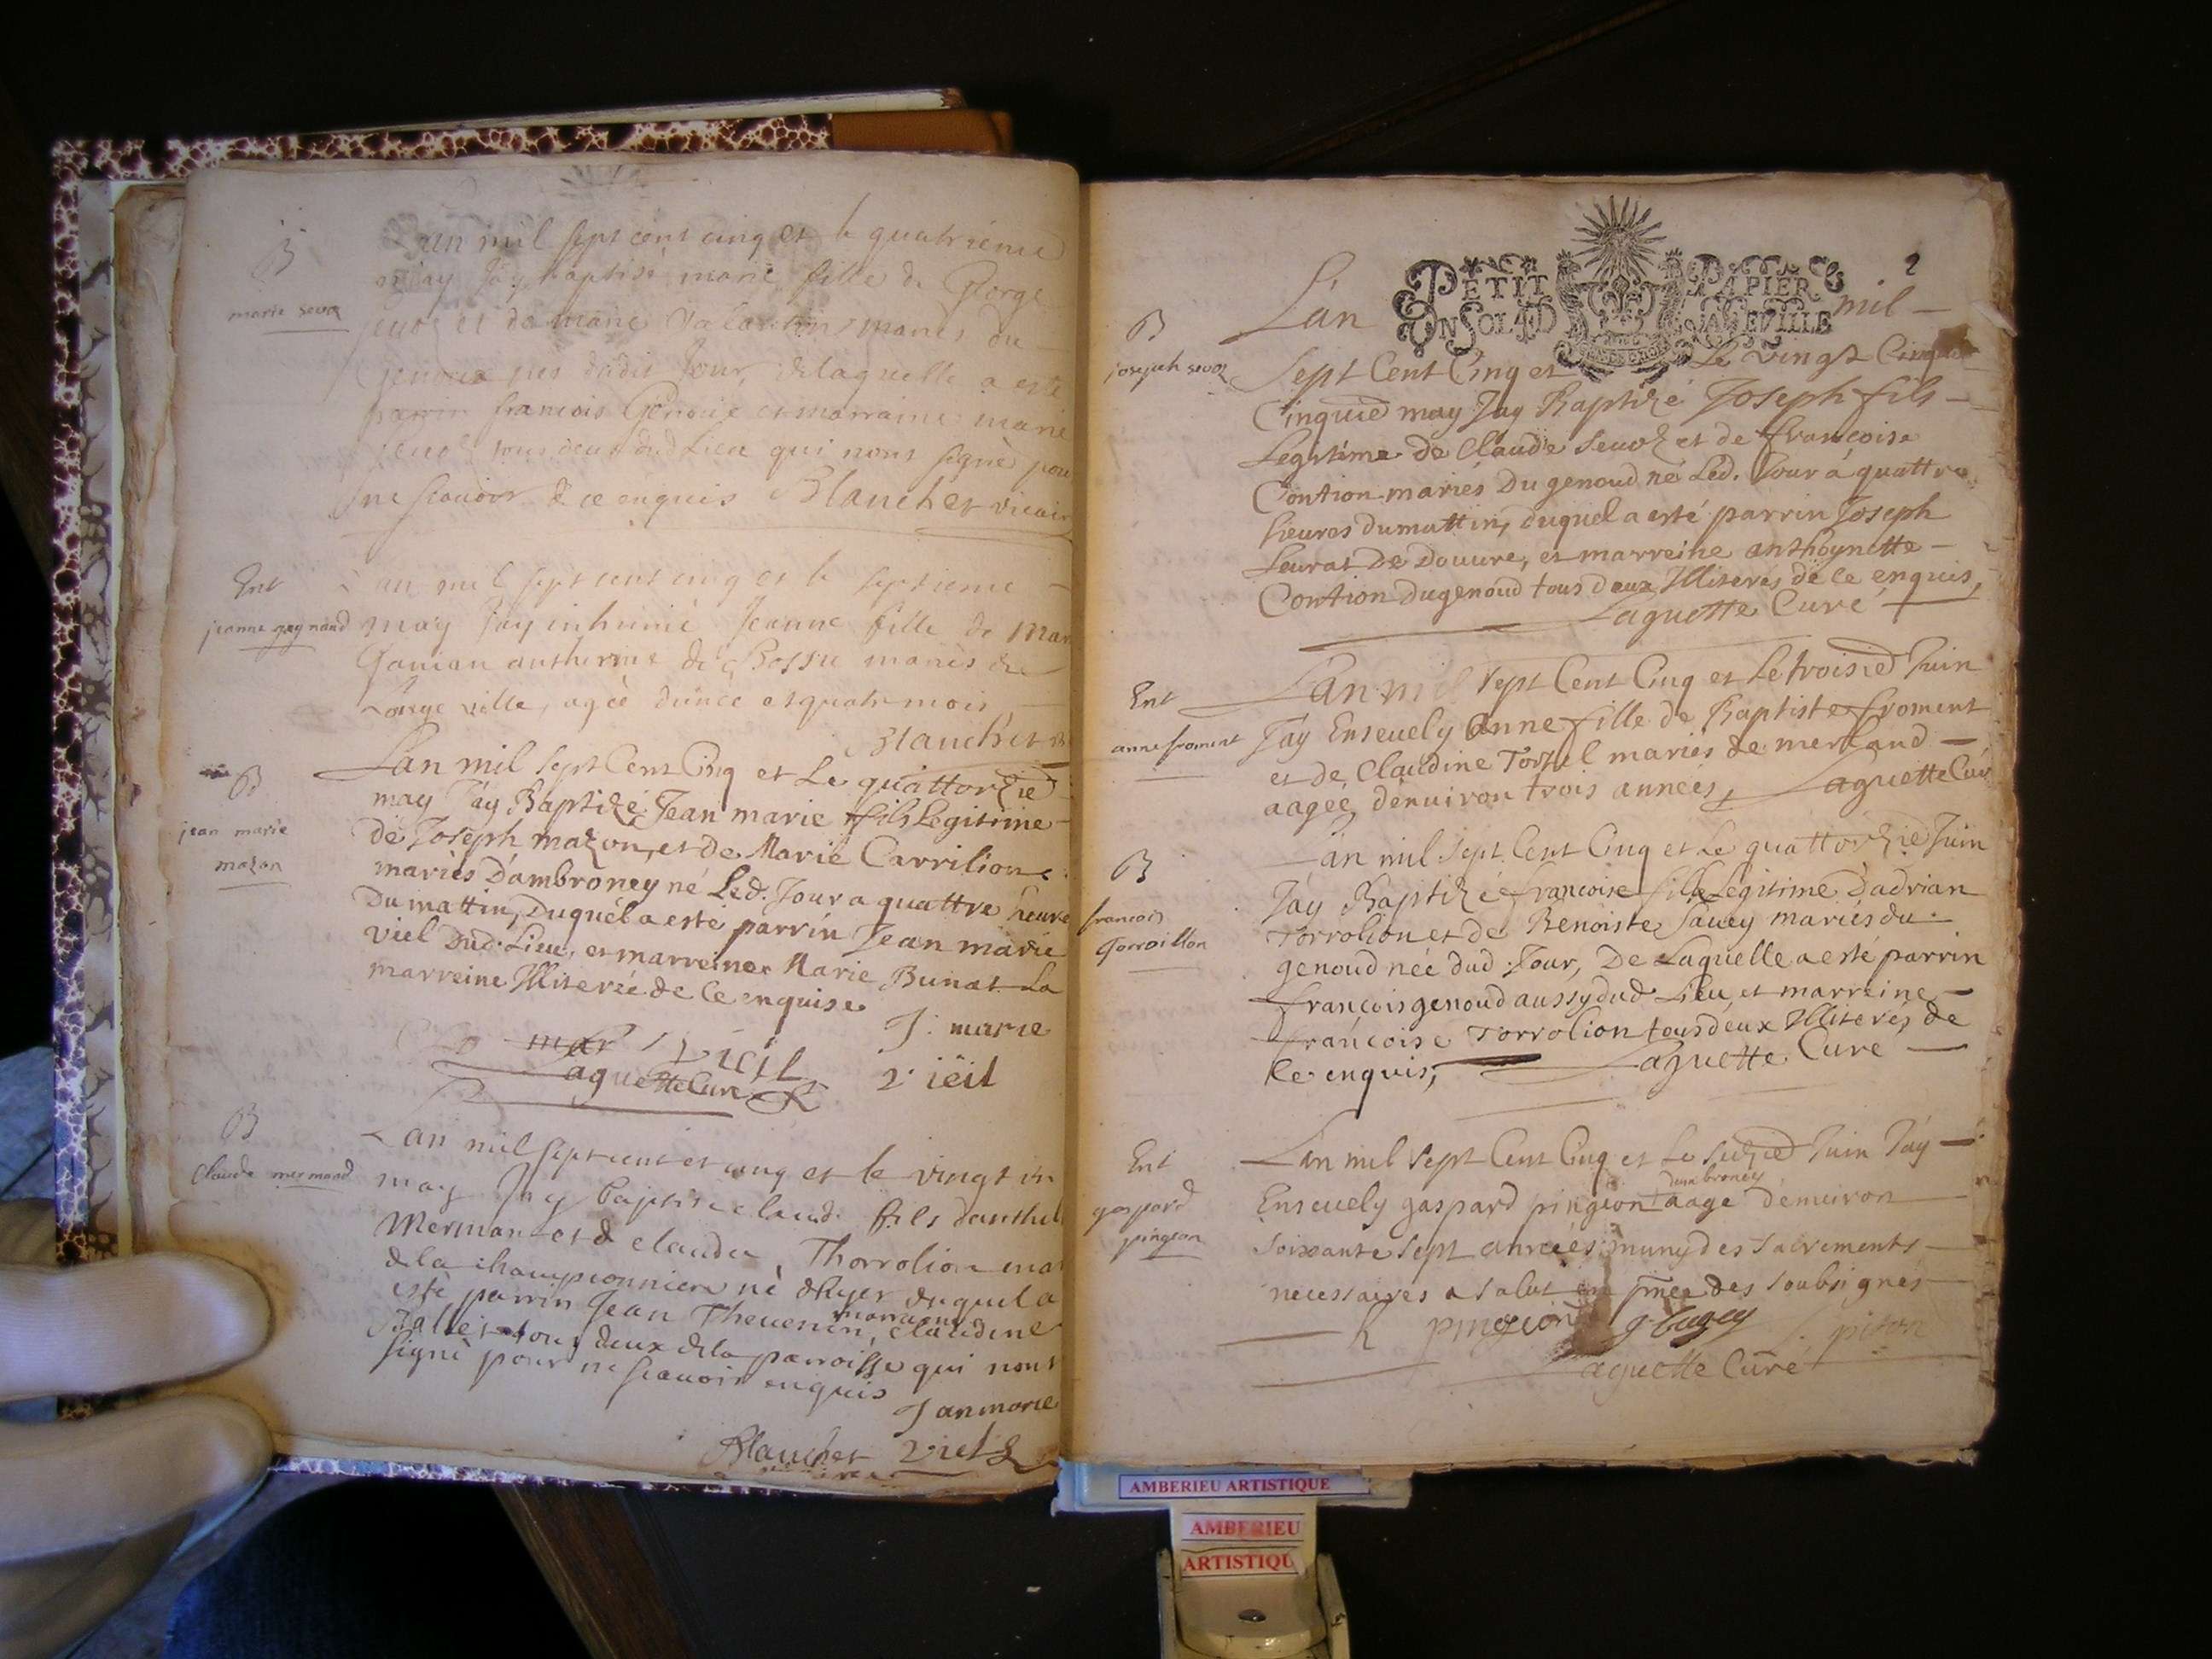 B
marie sevoz
L'an mil sept cent cinq et le quatrieme
may Jay baptisé marie fille de George
sevoz et de marie mariés du
genoux née dudit Jour, de laquelle a esté
parrin francois Genoux et marraine marie
sevoz tous deux dud Lieu qui nont signé pour
ne scavoir de ce enquis Blanchet vicaire
Ent
jeanne gagnand
L'an mil sept cent cinq et le septieme
may Jay inhumé Jeanne fille de
mariés de
Longe ville, agée et quatre mois
Blanchet
B
jean marie
mazon
L'an mil Sept Cent Cinq et Le quattorzie
may Jay Baptizé Jean marie fils Legitime
de Joseph mazon, et de Marie Carrilion
mariés D'ambroney né Led. Jour a quattre heure
Du mattin, Duquel a esté parrin Jean marie
viel Dud. Lieu, et marreine Marie Bunat La
marreine Illiterée de Ce enquise
J. marie
mar vieil
vieil
Laguette Curé
B
Claude mermand
L'an mil sept cent et cinq et le vingt
may Jay baptisé claude fils
Merman et de claudu Thorrolion
de la championniere né dhyer duquel a
esté parrin Jean Thevenin, marraine claudine
tous deux de la parroisse qui nont
signé pour ne scavoir enquis
Janmarie
Blanchet viel
2
PETIT PAPIER
UN SOL 4 D LA FEVILLE
B
joseph sevoz
L'an mil
Sept Cent Cinq et Le vingt Cinq
Cinquie may Jay Baptizé Joseph fils
Legitime de Claude Sevoz et de francoise
Contion mariés Du genoud né Led. Jour à quattre
heures du mattin, duquel a esté parrin Joseph
Leurat De Douure, et marreine anthoynette
Contion du genoud tous deux Illiterés de Ce enquis,
Laguette Curé
Ent
anne froment
L'an mil Sept Cent Cinq et Le troisie Juin
Jay Ensevely Anne fille de Baptiste froment
et de Claudine mariés de merland
aagée d'enuiron trois années, Laguette Curé
B
francois
Torroillon
L'an mil Sept Cent Cinq et Le quattorzie Juin
Jay Baptizée francoise fille Legitime d'adrian
Torrolion et de Benoiste Sauey mariés du
genoud née dud. Jour, De Laquelle a esté parrin
francois genoud aussy dud Lieu, et marreine
francoise Torrolion tous deux Illiterés de
Ce enquis, Laguette Curé
Ent
gaspard
pingeon
L'an mil Sept Cent Cinq et Le Juin Jay
dambroney
Ensevely gaspard pingeon aage d'enuiron
soixante sept années muny des Sacrements
necessaires a Salut en pnce des soubsignés
pingeon piton
Laguette Curé
AMBERIEU ARTISTIQUE
AMBERIEU
ARTISTIQU